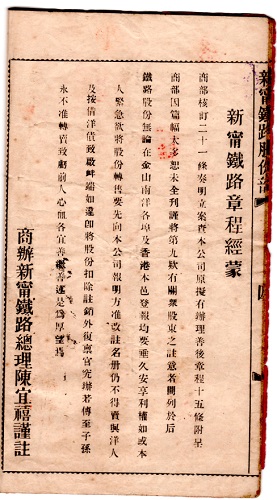 新甯鐵路章程經蒙
商部核訂二十一條奏明立案查本公司原擬有辦理善後章程十五條附呈
商部因篇幅太多恕未全刊謹將第九欵有關衆股東之註意者開列於后
鐵路股份無論在金山南洋各埠及香港本邑登報均要垂久安享利權如或本
人緊急欲將股份轉售要先向本公司報明方准改註名册仍不得賣與洋人
及按借洋債致啟衅端如違卽將股份扣除註銷外復禀官究辦若傳至子孫
永不准轉賣致虧前人心血各宜善繼善述是爲厚望焉
商辦新甯鐵路總理陳宜禧謹註
新甯鐵路股份部